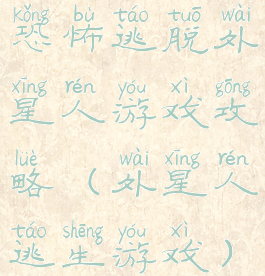 kǒng bù táo tuō wài
恐怖逃脱外
xīng rén yóu xì gōng
星人游戏攻
lüè wài xīng rén
略（外星人
táo shēng yóu xì
逃生游戏）